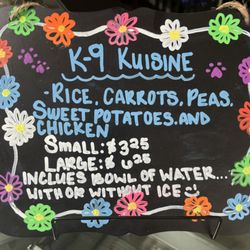 K-9 KUISINE
-RICE, CARROTS, PEAS,
SWEET POTATOES, AND
CHICKEN
SMALL: $3.25
LARGE: $ 4.25
INCLUDES BOWL OF WATER...
WITH OR WITHOUT ICE